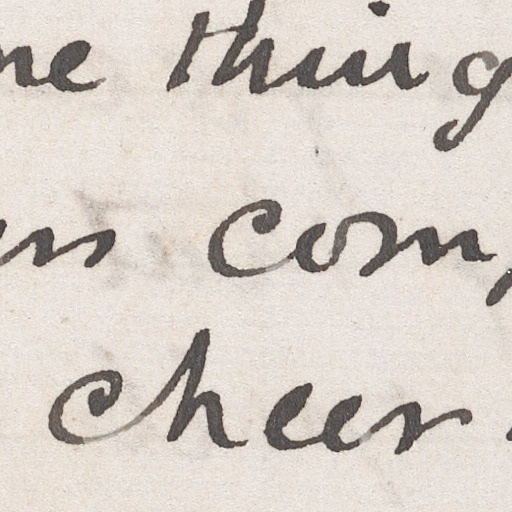 ne thing
com
cheer